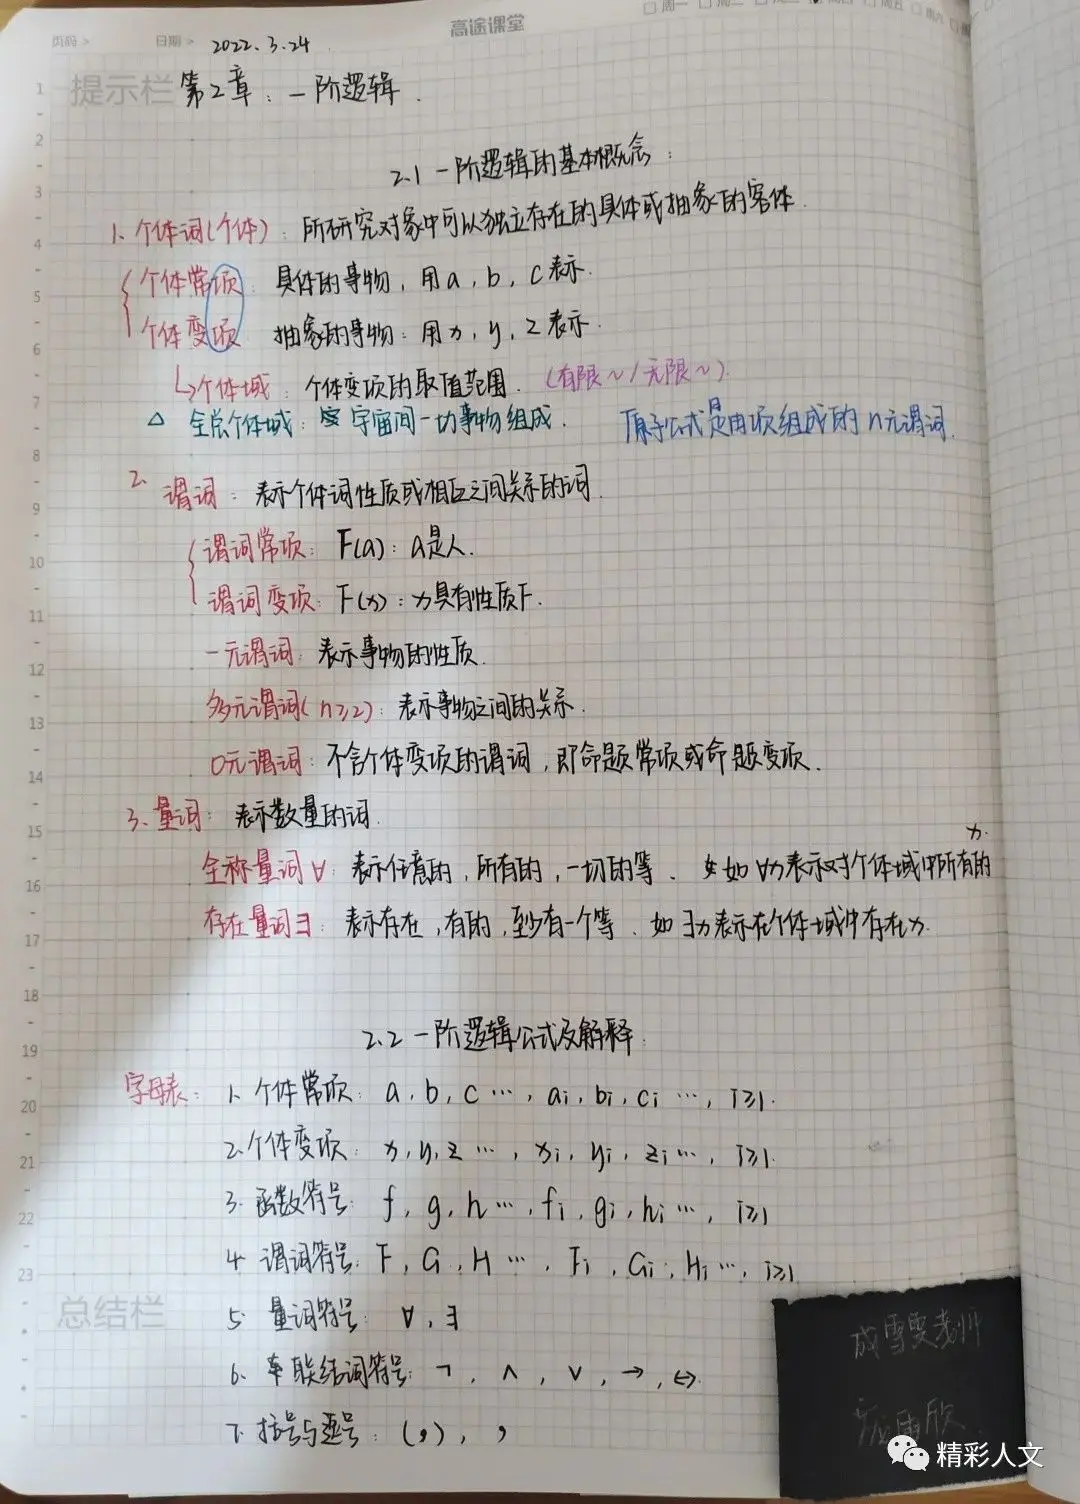 高途课堂
页码 >
日期 > 2022.3.24
周一 周二
提示栏
第2章：一阶逻辑.
2.1 一阶逻辑的基本概念：
1. 个体词(个体)：所研究对象中可以独立存在的具体或抽象的客体.
个体常项：具体的事物，用a，b，c表示.
个体变项 抽象的事物：用x，y，z表示.
↳个体域：个体变项的取值范围. (有限~/无限~).
△ 全总个体域：宇宙间一切事物组成. 原子公式是由项组成的n元谓词.
2. 谓词：表示个体词性质或相互之间关系的词.
谓词常项：F(a)：a是人.
谓词变项：F(x)：x具有性质F.
一元谓词：表示事物的性质.
多元谓词(n≥2)：表示事物之间的关系.
0元谓词：不含个体变项的谓词，即命题常项或命题变项.
3. 量词：表示数量的词.
全称量词∀：表示任意的，所有的，一切的等. 如∀x表示对个体域中所有的x.
存在量词∃：表示存在，有的，至少有一个等. 如∃x表示在个体域中存在x.
2.2 一阶逻辑公式及解释.
字母表：1. 个体常项：a, b, c …, ai, bi, ci …, i≥1.
2. 个体变项：x, y, z …, xi, yi, zi …, i≥1.
3. 函数符号：f, g, h …, fi, gi, hi …, i≥1
4. 谓词符号：F, G, H …, Fi, Gi, Hi …, i≥1
5. 量词符号：∀, ∃
6. 联结词符号：¬, ∧, ∨, →, ↔.
7. 括号与逗号：(,), ,
总结栏
精彩人文